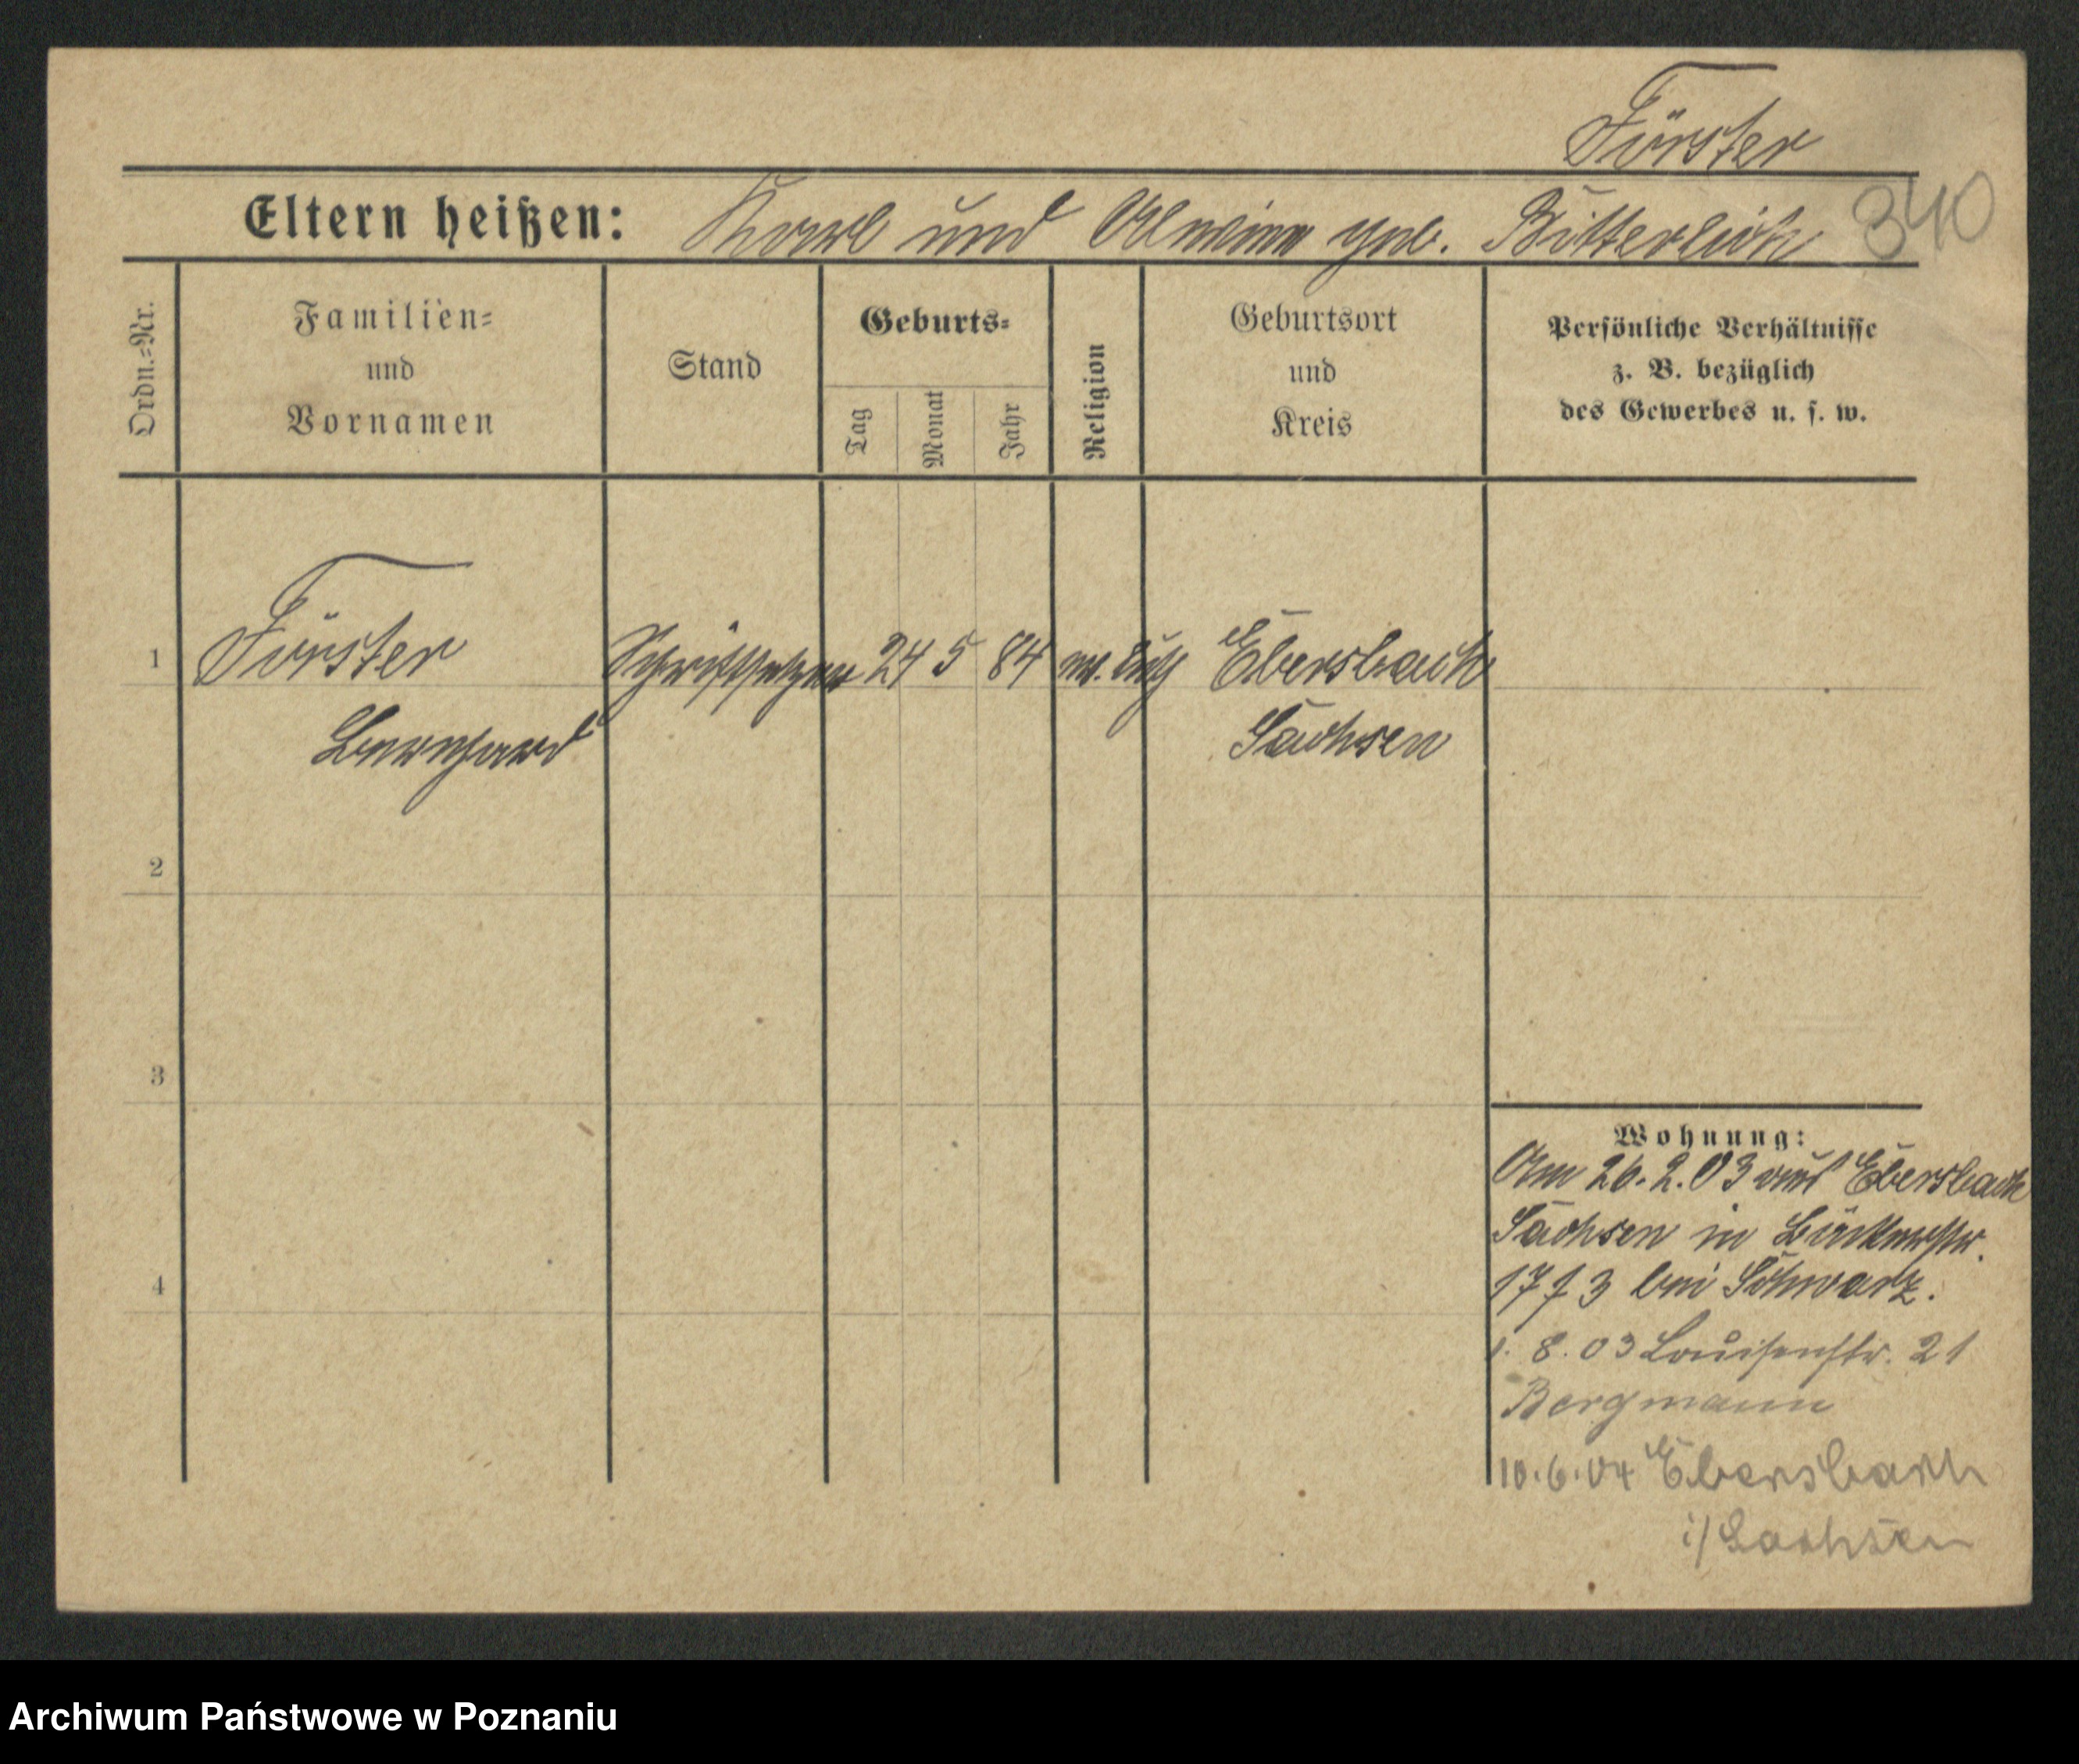 Förster
Eltern heißen: Karl und Alwine geb. Bitterlich 340
Ordn.=Nr.
Familien=
und
Vornamen
Stand
Geburts=
Tag
Monat
Jahr
Religion
Geburtsort
und
Kreis
Persönliche Verhältnisse
z. B. bezüglich
des Gewerbes u. s. w.
1 Förster Schriftsetzer 24 5 84 ev. Ebersbach
Bernhard Sachsen
2
3
4
Wohnung:
Am 26.2.03 aus Ebersbach
Sachsen in Bäckerstr.
17 f 3 bei Schwarz.
1. 8. 03 Louisenstr. 21
Bergmann
10.6.04 Ebersbach
i/Sachsen
Archiwum Państwowe w Poznaniu